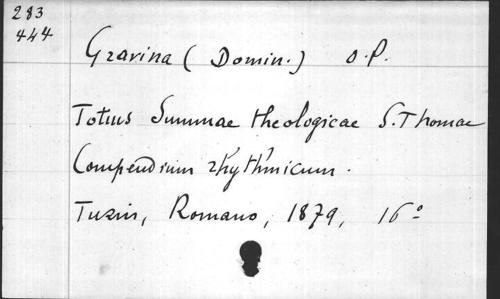 283
444
Gravina (Domin.) O.P.
Totius Summae theologicae S. Thomae
Compendium rhythmicum.
Turin, Romano, 1879, 16º